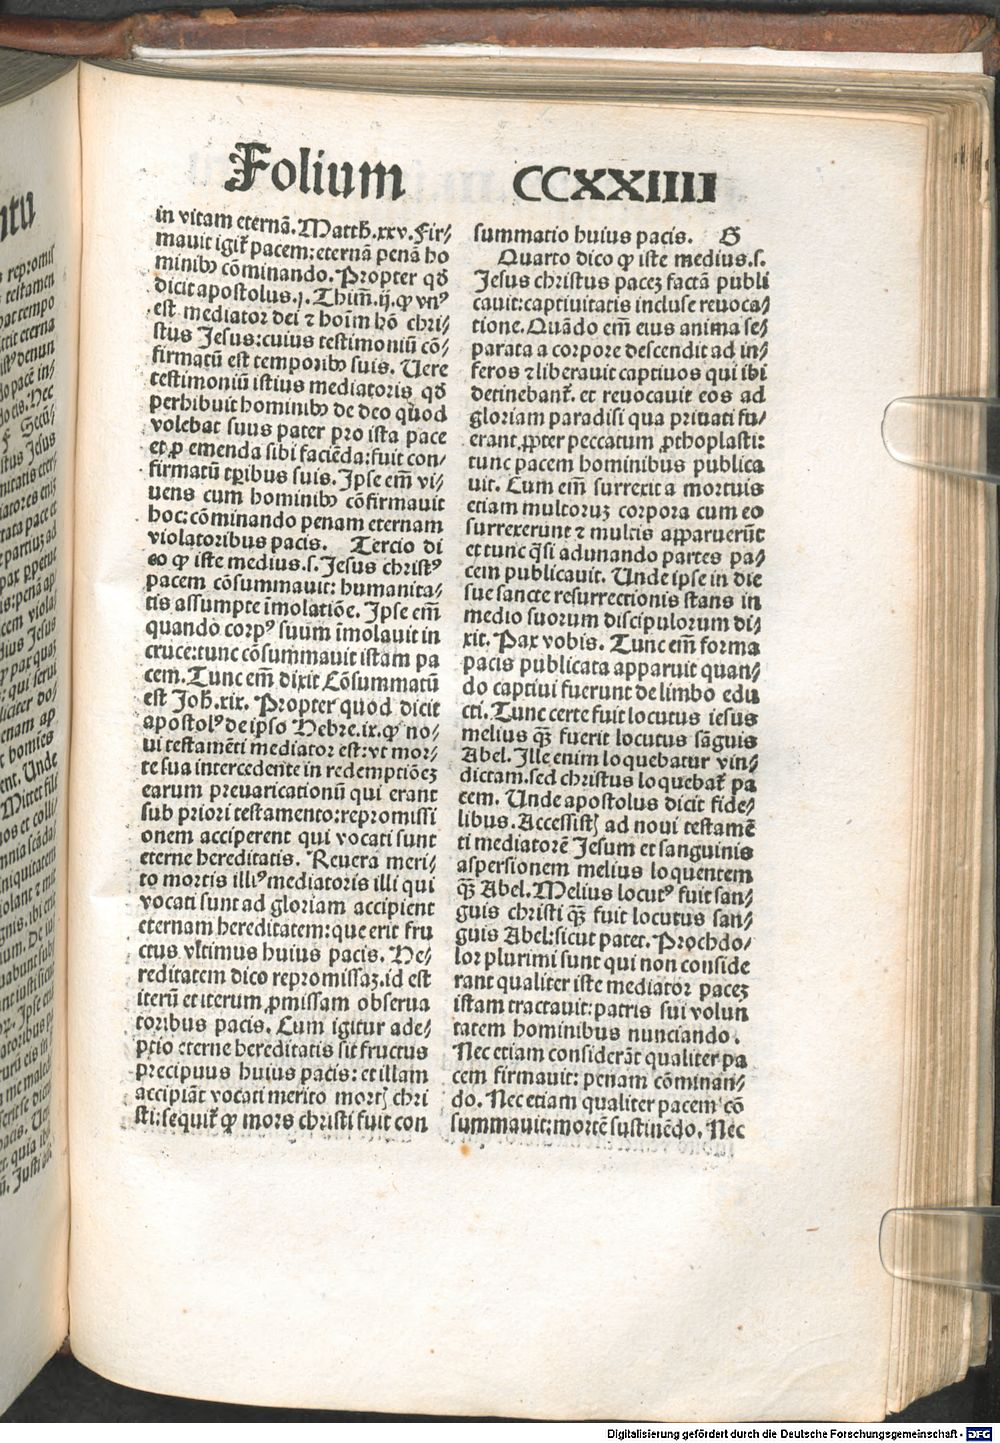 Folium CCXXIIII
in vitam eternā. Matth. xxv. Fir⸗
mauit igit̉ pacem: eternā penā ho
minibꝫ cōminando. Propter qḋ
dicit apostolus. j. Thim̄. ij. ꝙ vnꝰ
est mediator dei ⁊ hoīm hō chri⸗
stus Jesus: cuius testimoniū cō⸗
firmatū est temporibꝫ suis. Uere
testimoniū istius mediatoris qḋ
perhibuit hominibꝫ de deo quod
volebat suus pater pro ista pace
et ꝓ emenda sibi faciēda: fuit con⸗
firmatū tꝑibus suis. Ipse em̄ vi⸗
uens cum hominibꝫ cōfirmauit
hoc: cōminando penam eternam
violatoribus pacis. Tercio di
co ꝙ iste medius .s. Jesus christꝰ
pacem cōsummauit: humanita⸗
tis assumpte īmolatiōe. Ipse em̄
quando corpꝰ suum īmolauit in
cruce: tunc cōsummauit istam pa
cem. Tunc em̄ dixit Cōsummatū
est Joh̄. xix. Propter quod dicit
apostolꝰ de ipso Hebre. ix. ꝙ no⸗
ui testamēti mediator est: vt mor⸗
te sua intercedente in redemptiōeꝫ
earum preuaricationū qui erant
sub priori testamento: repromissi
onem acciperent qui vocati sunt
eterne hereditatis. Reuera meri⸗
to mortis illiꝰ mediatoris illi qui
vocati sunt ad gloriam accipient
eternam hereditatem: que erit fru
ctus vltimus huius pacis. He⸗
reditatem dico repromissaꝫ. id est
iterū et iterum ꝓmissam obserua
toribus pacis. Cum igitur ade⸗
ptio eterne hereditatis sit fructus
precipuus huius pacis: et illam
accipiāt vocati merito mortꝭ chri
sti: sequit̉ ꝙ mors christi fuit con
summatio huius pacis. G
Quarto dico ꝙ iste medius .s.
Jesus christus paceꝫ factā publi
cauit: captiuitatis incluse reuoca⸗
tione. Quādo em̄ eius anima se⸗
parata a corpore descendit ad in⸗
feros ⁊ liberauit captiuos qui ibi
detinebant̉. et reuocauit eos ad
gloriam paradisi qua priuati fu⸗
erant ꝓpter peccatum ꝓthoplasti:
tunc pacem hominibus publica
uit. Cum em̄ surrexit a mortuis
etiam multoruꝫ corpora cum eo
surrexerunt ⁊ multis apparuerūt
et tunc q̄si adunando partes pa⸗
cem publicauit. Unde ipse in die
sue sancte resurrectionis stans in
medio suorum discipulorum di⸗
xit. Pax vobis. Tunc em̄ forma
pacis publicata apparuit quan⸗
do captiui fuerunt de limbo edu
cti. Tunc certe fuit locutus iesus
melius qꝫ̄ fuerit locutus sāguis
Abel. Ille enim loquebatur vin⸗
dictam. sed christus loquebat̉ pa
cem. Unde apostolus dicit fide⸗
libus. Accessistꝭ ad noui testamē
ti mediatorē Jesum et sanguinis
aspersionem melius loquentem
qꝫ̄ Abel. Melius locutꝰ fuit san⸗
guis christi qꝫ̄ fuit locutus san⸗
guis Abel: sicut patet. Prochdo⸗
lor plurimi sunt qui non conside
rant qualiter iste mediator paceꝫ
istam tractauit: patris sui volun
tatem hominibus nunciando.
Nec etiam considerāt qualiter pa
cem firmauit: penam cōminan⸗
do. Nec etiam qualiter pacem cō
summauit: mortē sustinēdo. Nec
Digitalisierung gefördert durch die Deutsche Forschungsgemeinschaft - DFG